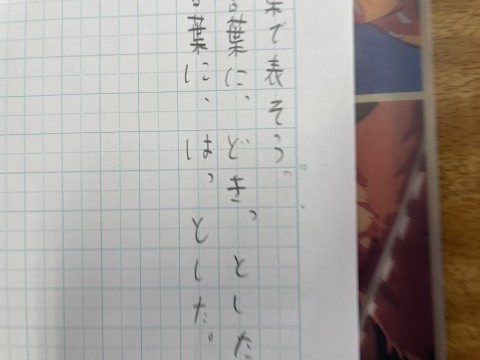 で表そう。
葉に、どきっとした
葉に、はっとした。